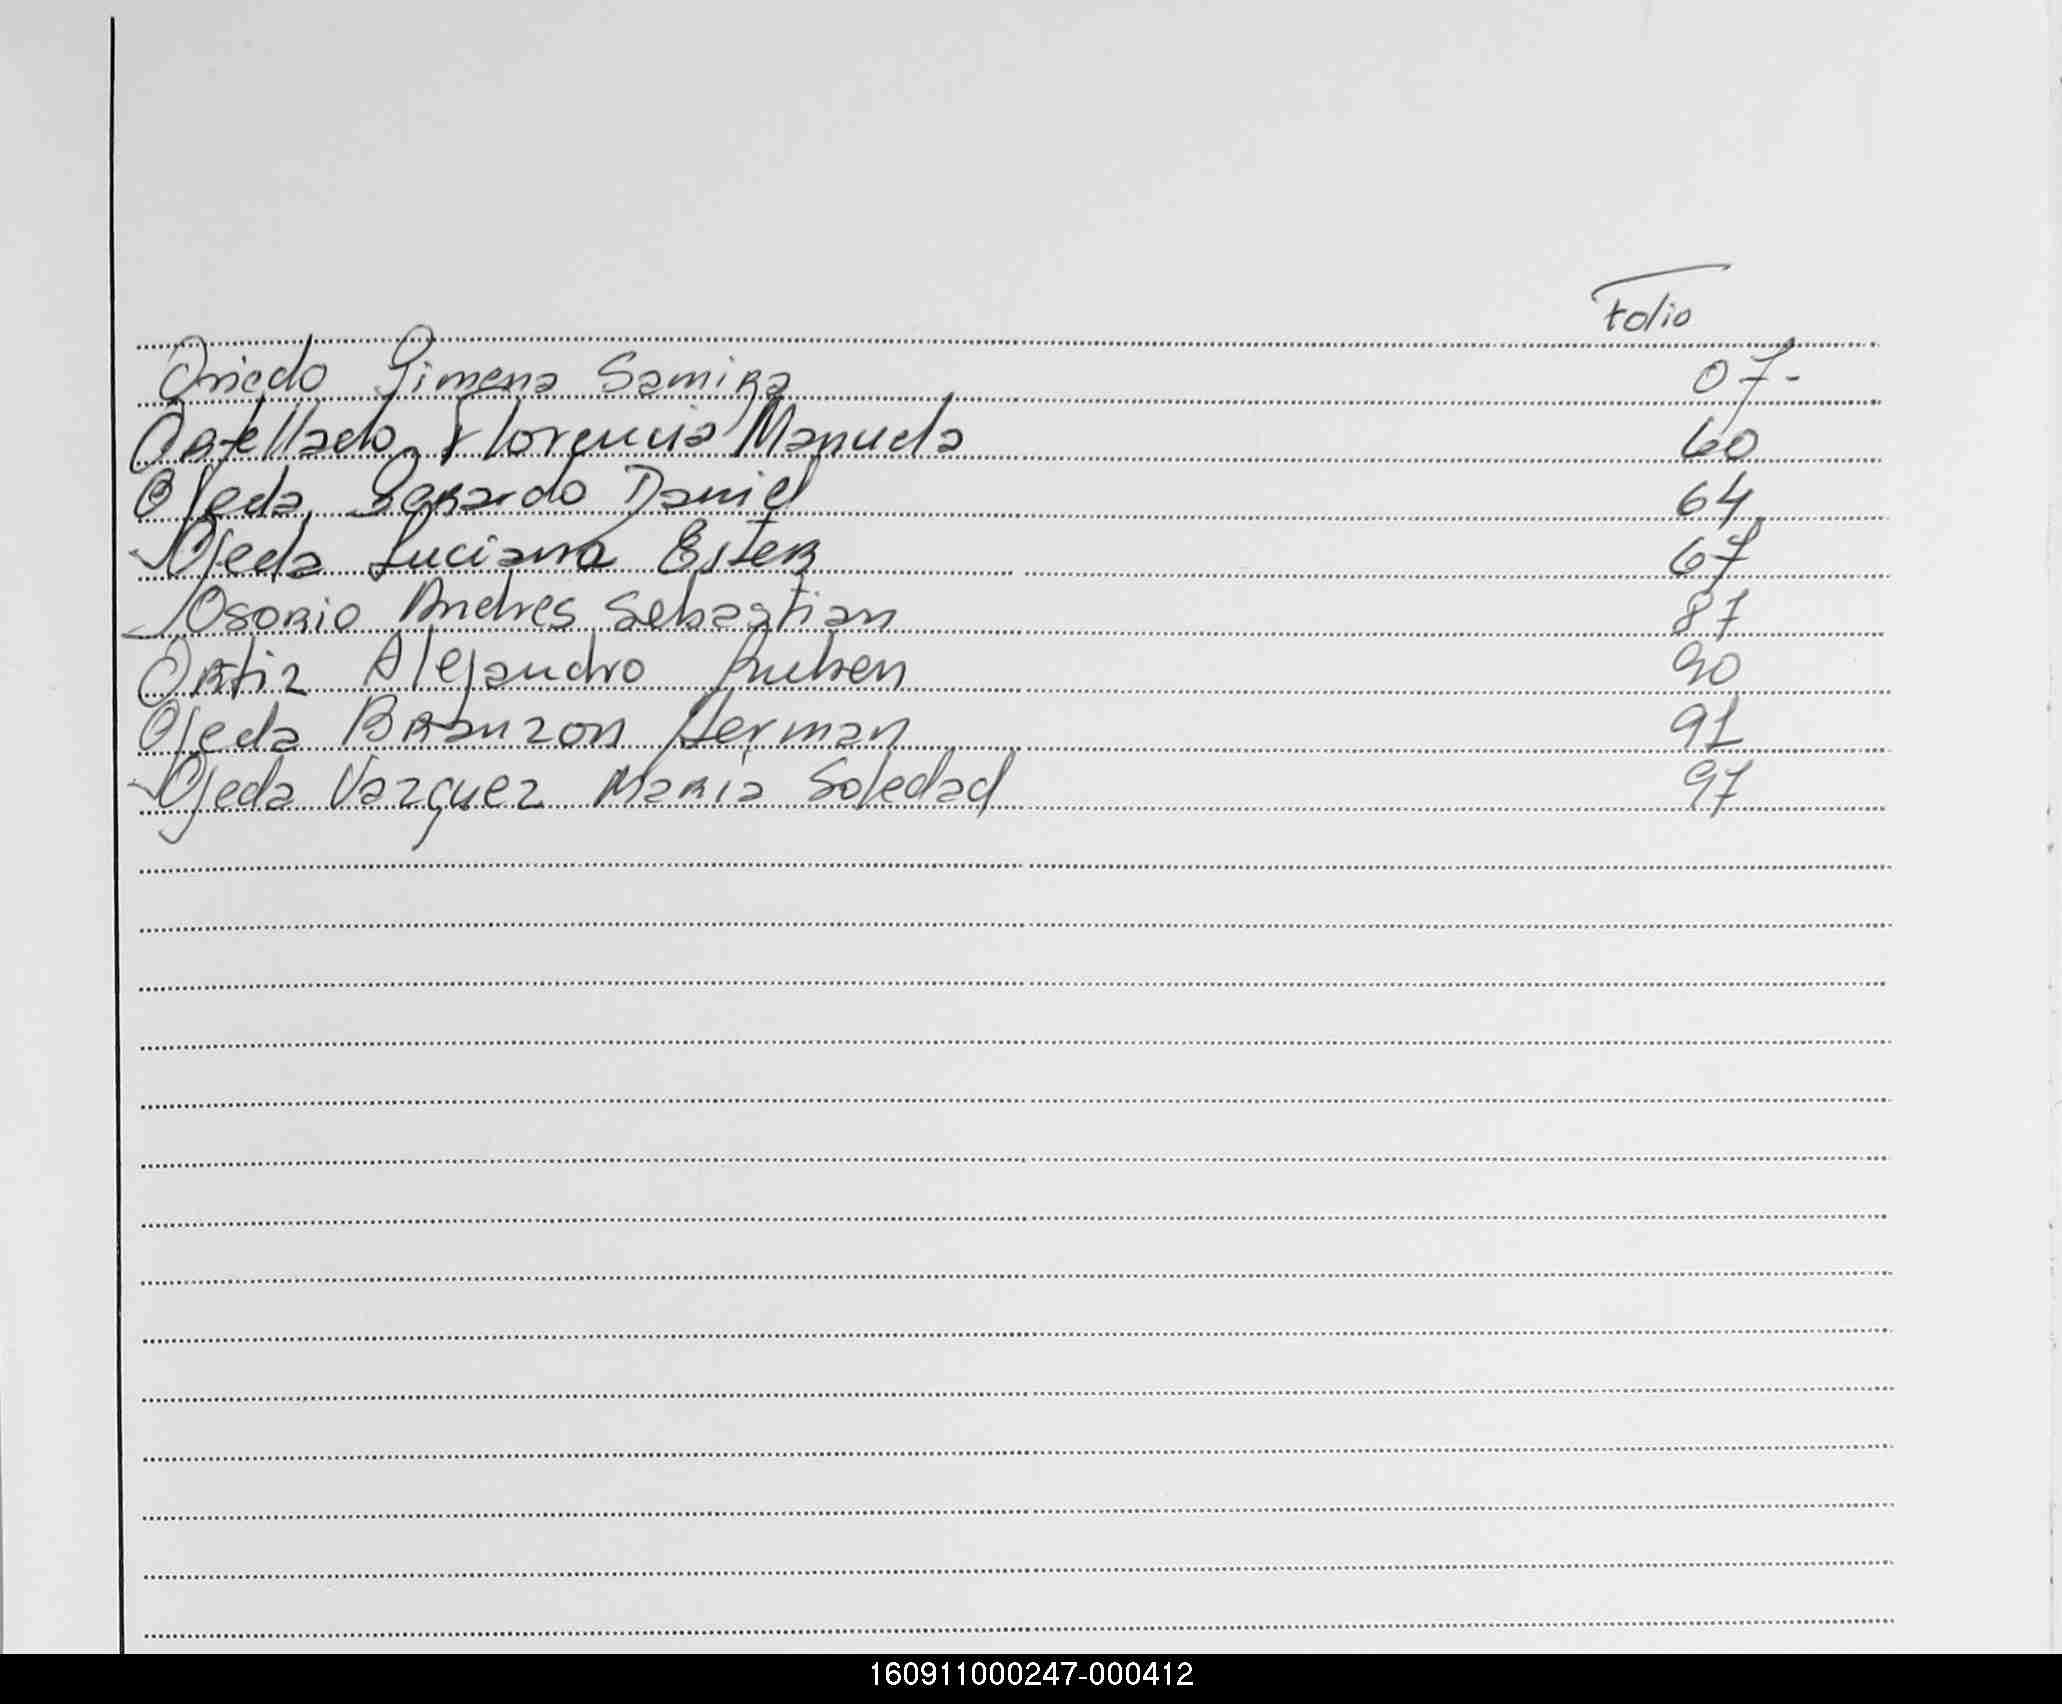 Folio
Oviedo Gimena Samira 07-
Ortellado Florencia Manuela 60
Ojeda Gerardo Daniel 64
Ojeda Luciana Ester 67
Osorio Andres Sebastian 87
Ortiz Alejandro Ruben 90
Ojeda Branzon German 91
Ojeda Vazquez Maria Soledad 97
160911000247-000412